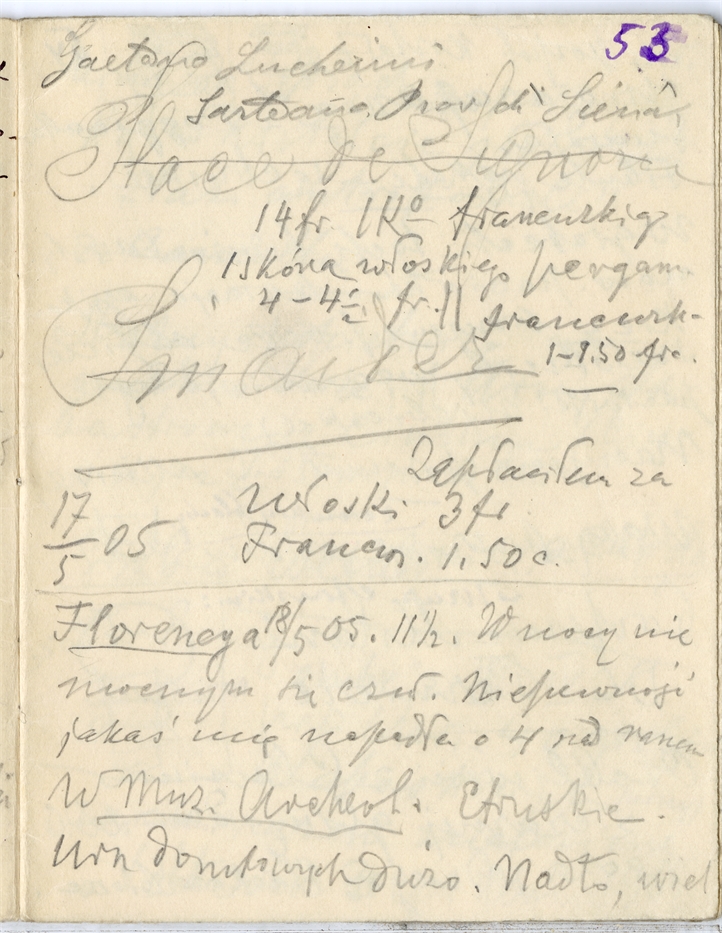 53
Gaetano Lucherini
Sarteano Prov di Siena
Place de Signoria
14 fr. 1 Ko francuskiego
1 skóra włoskiego pergam.
4 – 4½ fr. || francusk-
1–1.50 frc.
Zapłaciłem za
17/5 05 Włoski 3 fr
Francus. 1.50 c.
Florencya 18/5 05. 11½. W nocy nie
mocnym się czuł. Niepewność
jakaś mię napadła o 4 nad ranem
W Muz. Archeol. Etruskie.
Urn domkowych dużo. Nadto, wiel